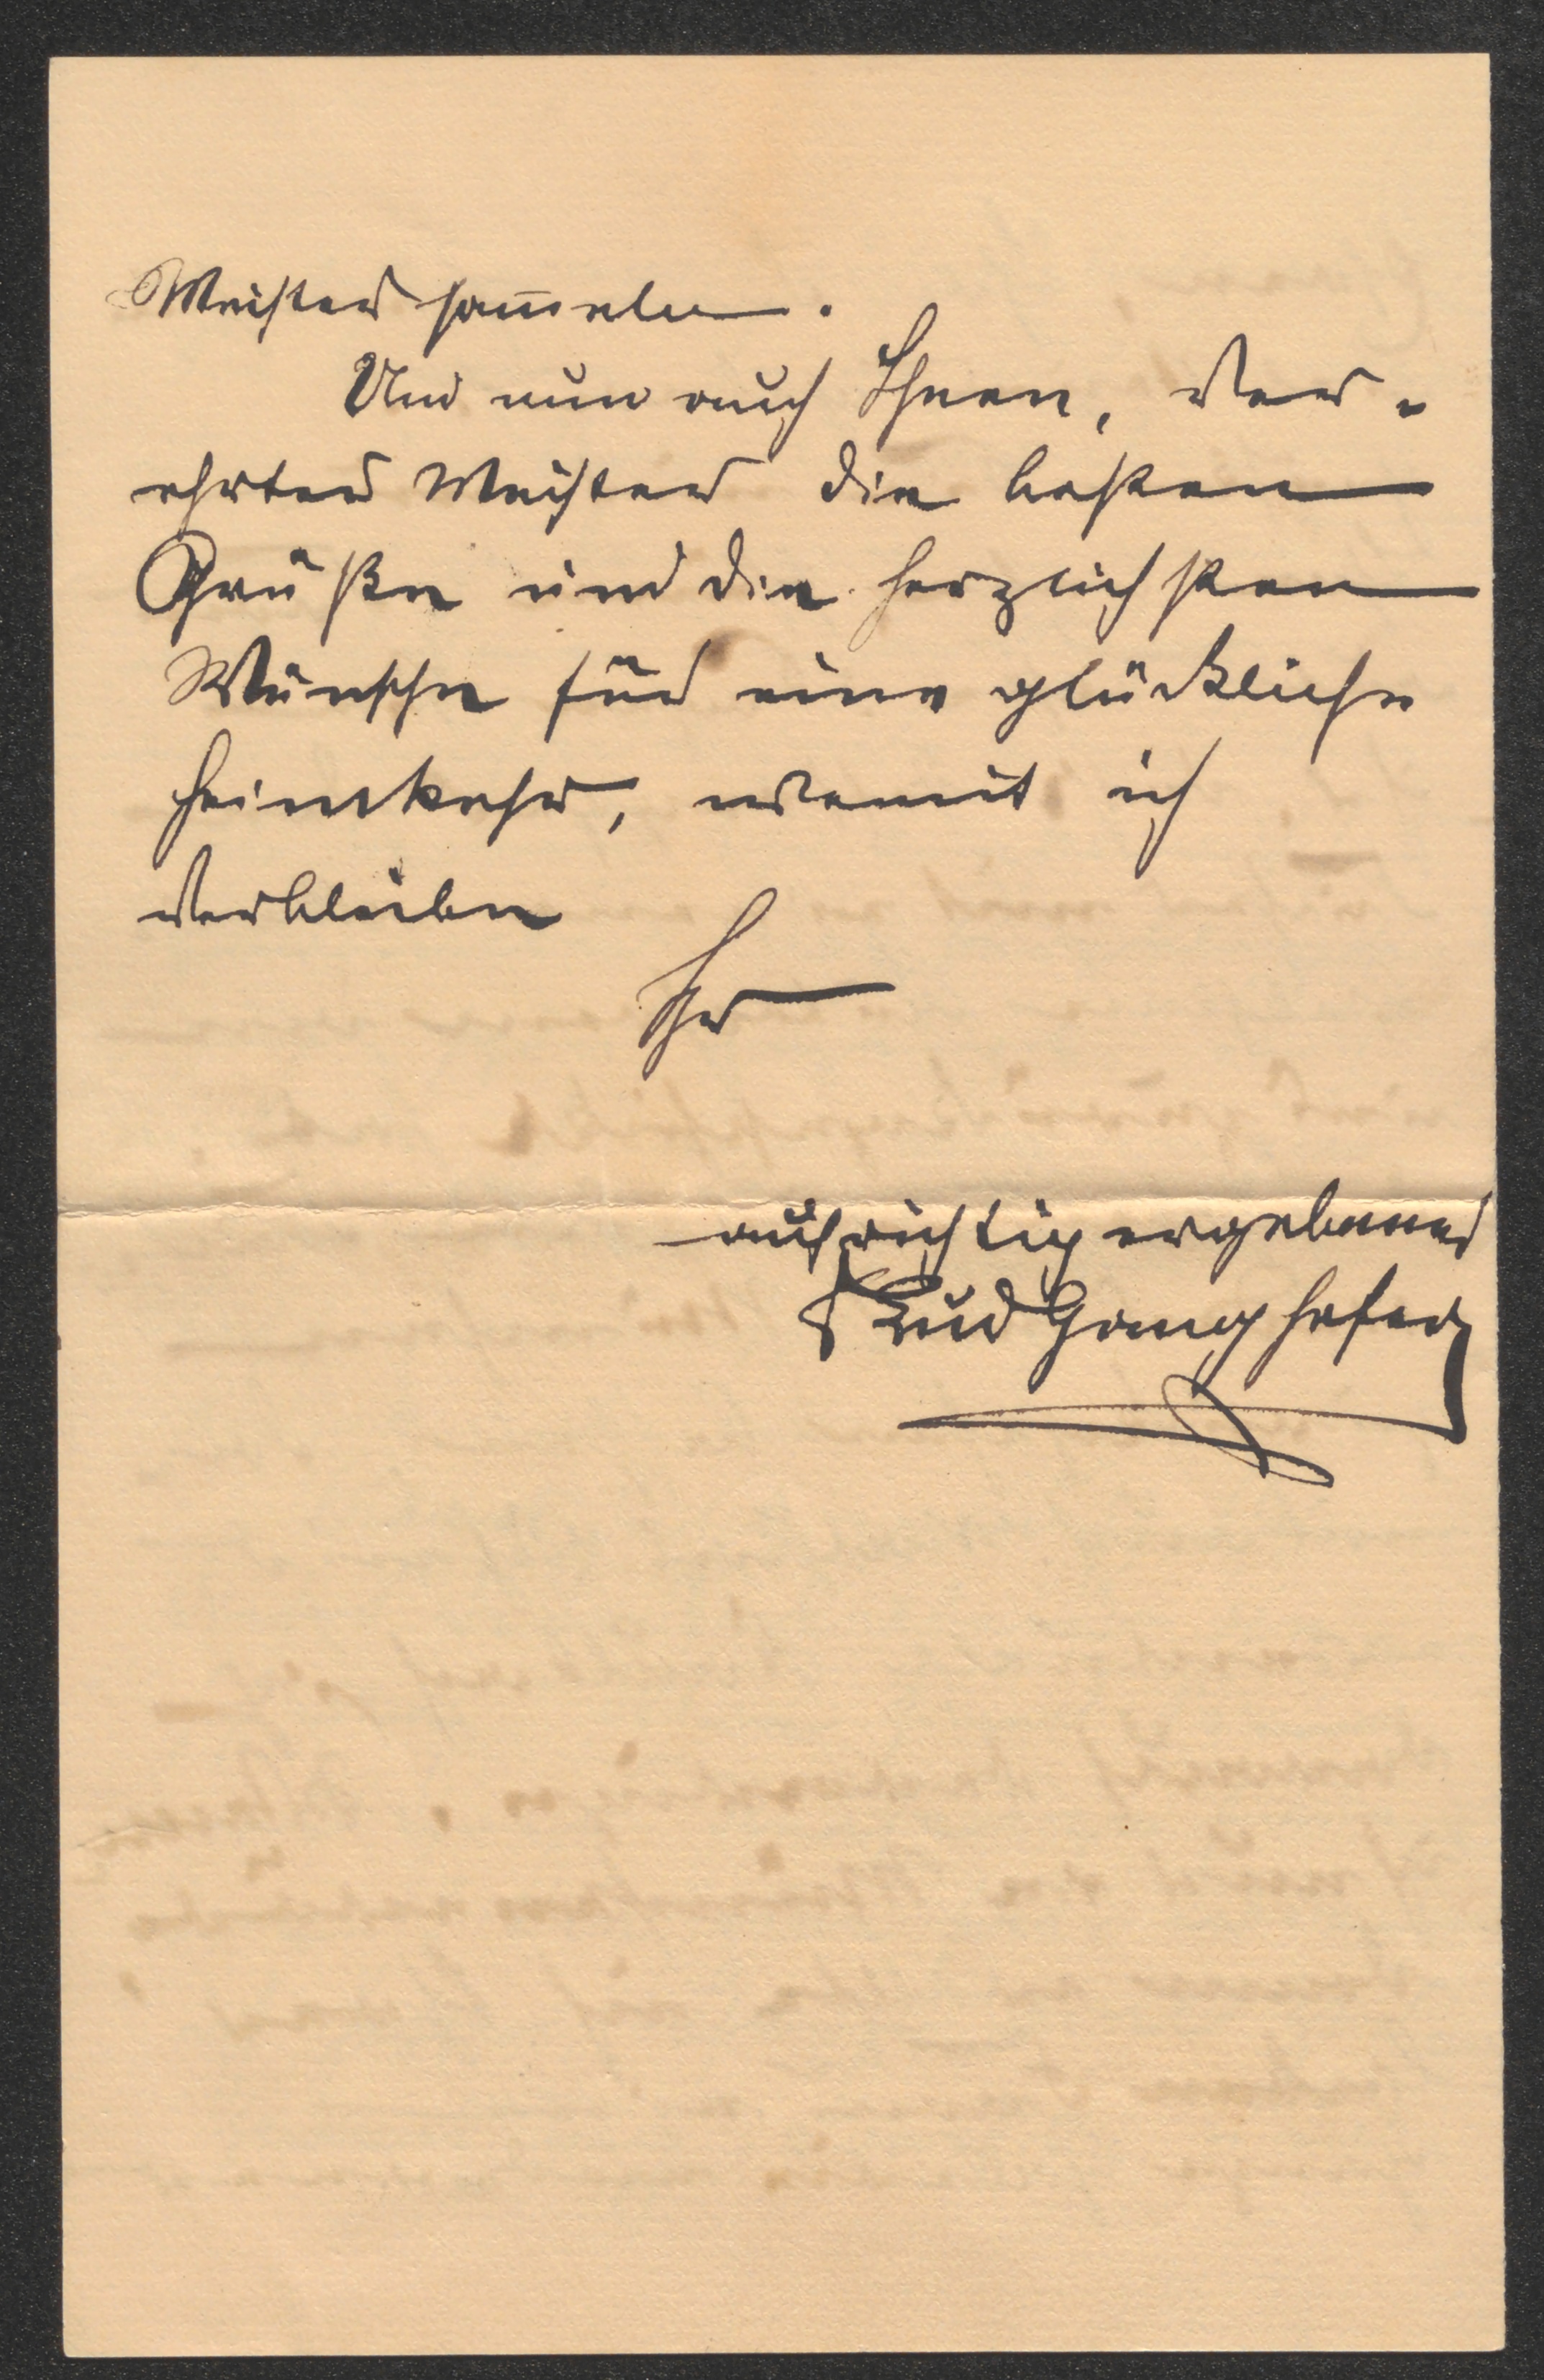 Meister sam̅eln.
Und nun auch Ihnen, ver-
ehrter Meister die besten
Grüße und die herzlichsten
Wünsche für eine glückliche
Heimkehr, womit ich
verbleibe
Ihr
aufrichtig ergebener
Lud Ganghofer